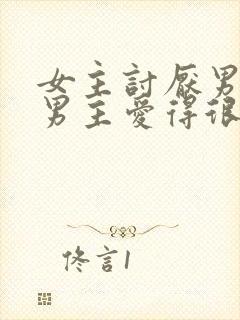 女主討厭男
男主愛得很
佟言1